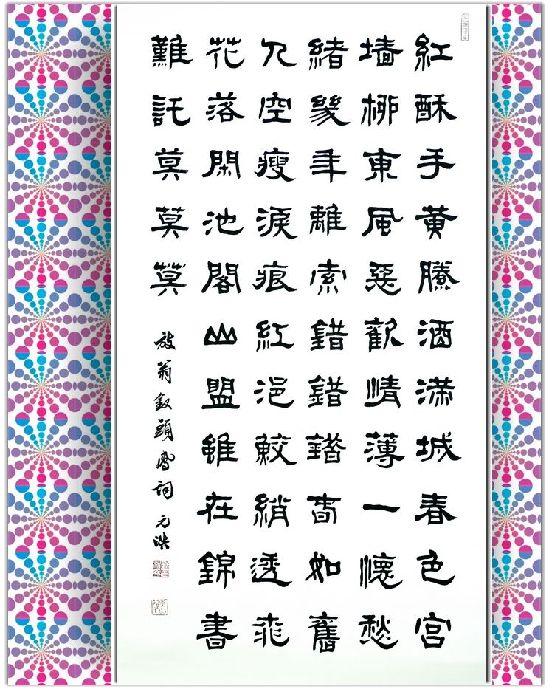 紅酥手黃騰酒滿城春色宮
墻柳東風惡歡情薄一懷愁
緒幾年離索錯錯錯春如舊
人空瘦淚痕紅浥鮫綃透桃
花落閑池閣山盟雖在錦書
難託莫莫莫
放翁釵頭鳳詞